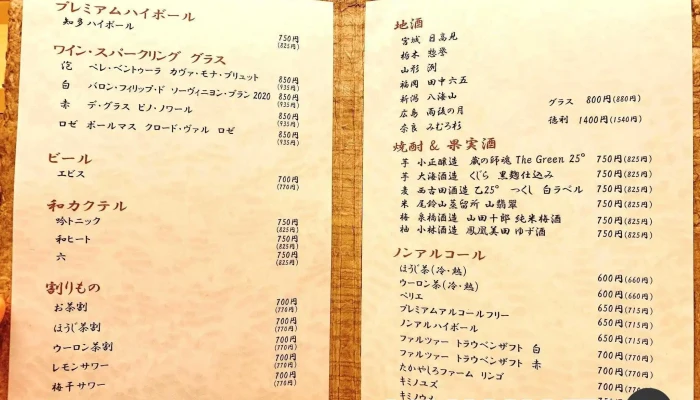 プレミアムハイボール
知多ハイボール 750円
(825円)
ワイン・スパークリング グラス
泡 ベレ・ベントゥーラ カヴァ・モナ・ブリュット 850円
(935円)
白 バロン・フィリップ・ド ソーヴィニヨン・ブラン2020 850円
(935円)
赤 デ・グラス ピノ・ノワール 850円
(935円)
ロゼ ポールマス クロード・ヴァル ロゼ 850円
(935円)
ビール
エビス 700円
(770円)
和カクテル
吟トニック 750円
(825円)
和ヒート 750円
(825円)
六 750円
(825円)
割りもの
お茶割 700円
(770円)
ほうじ茶割 700円
(770円)
ウーロン茶割 700円
(770円)
レモンサワー 700円
(770円)
梅干サワー 700円
(770円)
地酒
宮城 日高見
栃木 惣誉
山形 洌
福岡 田中六五
新潟 八海山
広島 雨後の月
奈良 みむろ杉
グラス 800円(880円)
徳利 1400円(1540円)
焼酎 & 果実酒
芋 小正醸造 蔵の師魂 The Green 25° 750円(825円)
芋 大海酒造 くじら 黒麹仕込み 750円(825円)
麦 西吉田酒造 乙25° つくし 白ラベル 750円(825円)
米 尾鈴山蒸留所 山翡翠 750円(825円)
梅 泉橋酒造 山田十郎 純米梅酒 750円(825円)
柚 小林酒造 鳳凰美田 ゆず酒 750円(825円)
ノンアルコール
ほうじ茶(冷・熱) 600円(660円)
ウーロン茶(冷・熱) 600円(660円)
ペリエ 650円(715円)
プレミアムアルコールフリー 650円(715円)
ノンアルハイボール 650円(715円)
ファルツァー トラウベンザフト 白 700円(770円)
ファルツァー トラウベンザフト 赤 700円(770円)
たかやしろファーム リンゴ 700円
キミノユズ
キミノウメ